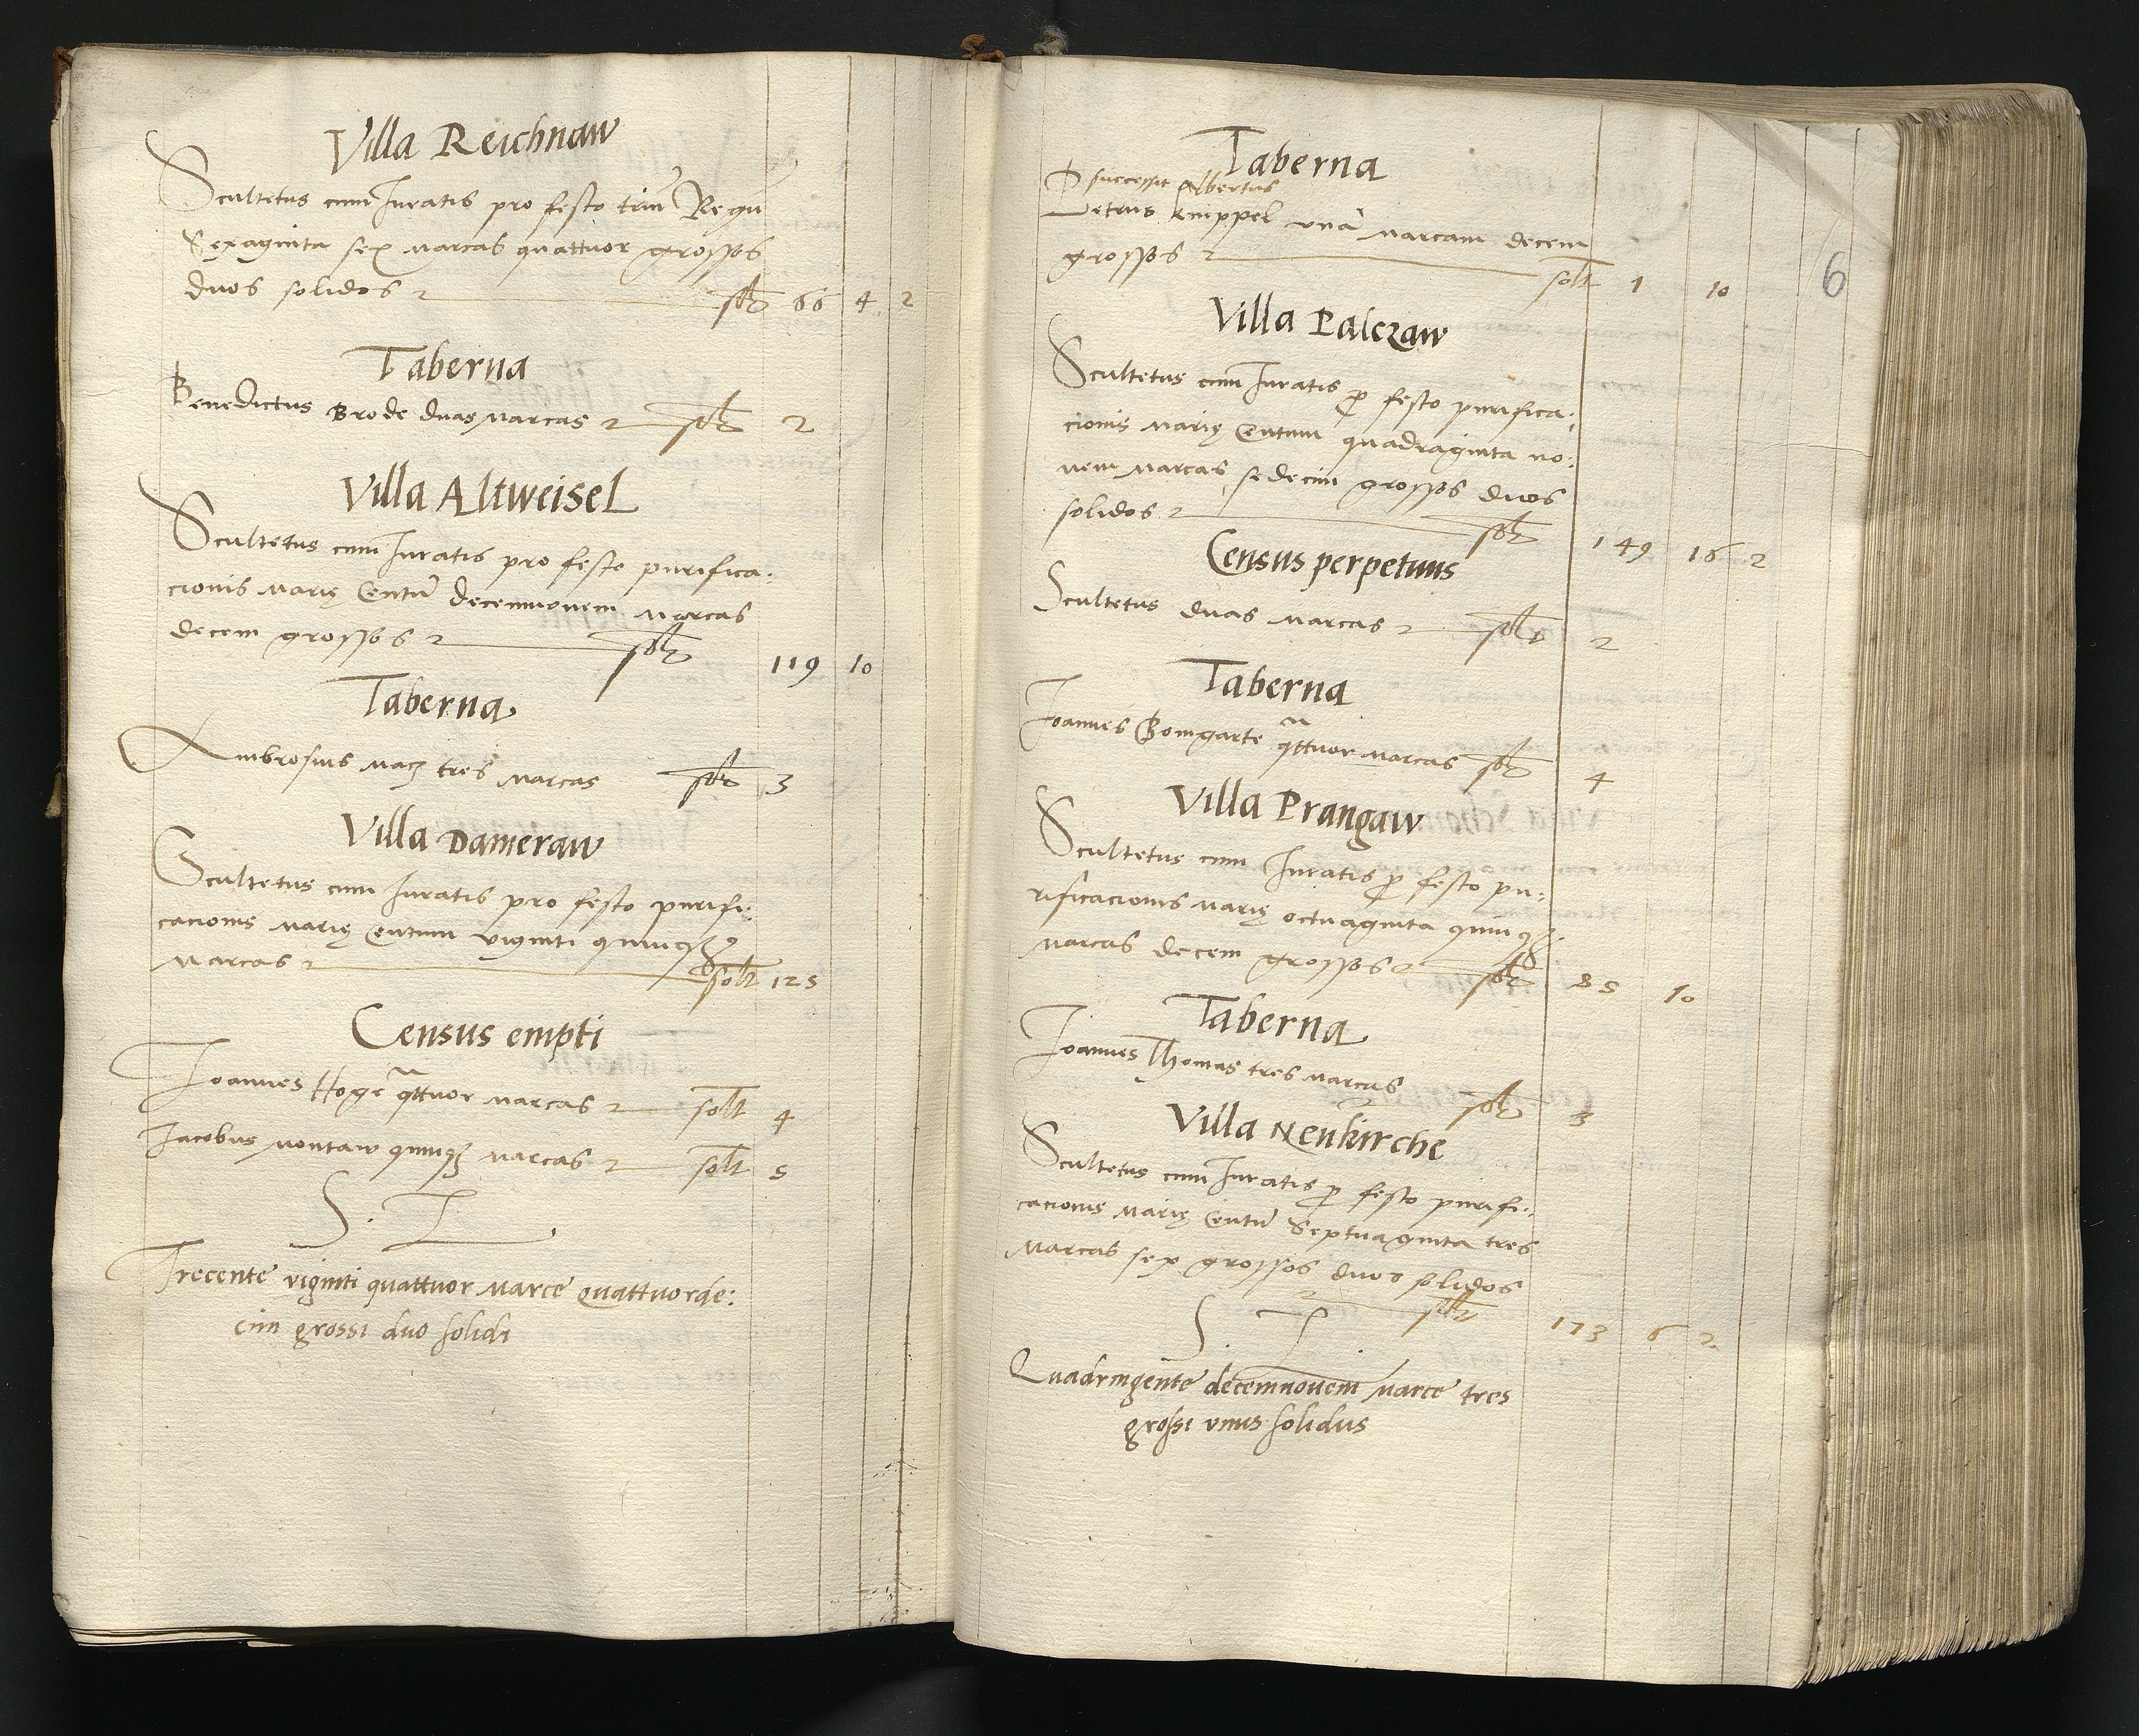 Villa Reichnaw
Scultetus cum Iuratis pro festo triũ Regũ
Sexaginta sex marcas quattuor grossos
duos solidos solt 66 4 2
Taberna
Benedictus Brode duas marcas solt 2
Villa Altweisel
Scultetus cum Iuratis pro festo purifica:
cionis Marię Centũ decemnovem marcas
decem grossos solt 119 10
Taberna
Ambrosius Macz tres marcas solt 3
Villa Dameraw
Scultetus cum Iuratis pro festo purifi:
cacionis Marię Centum viginti quinqȝ
marcas solt 125
Census empti
Ioannes Hoge q̃ttuor marcas solt 4
Iacobus Montaw quinqȝ marcas solt 5
S. L.
Trecente viginti quattuor marce quattuorde:
cim grossi duo solidi
6
Taberna
successit Albertus
Petrus Knippel unã marcam decem
grossos solt 1 10
Villa Palczaw
Scultetus cum Iuratis ꝓ festo purifica:
cionis Marię Centum quadraginta no:
uem marcas sedecim grossos duos
solidos solt 149 16 2
Census perpetuus
Scultetus duas marcas solt 2
Taberna
Ioannes Bomgarte q̃ttuor marcas solt 4
Villa Prangaw
Scultetus cum Iuratis ꝓ festo pu:
rificacionis Marię octuaginta quinqȝ
marcas decem grossos solt 85 10
Taberna
Ioannes Thomas tres marcas solt 3
Villa Neukirche
Scultetus cum Iuratis ꝓ festo purifi:
cacionis Marię Centũ Septuaginta tres
marcas sex grossos duos solidos
solt 173 6 2
S. L.
Quadringente decemnovem marce tres
grossi unus solidus